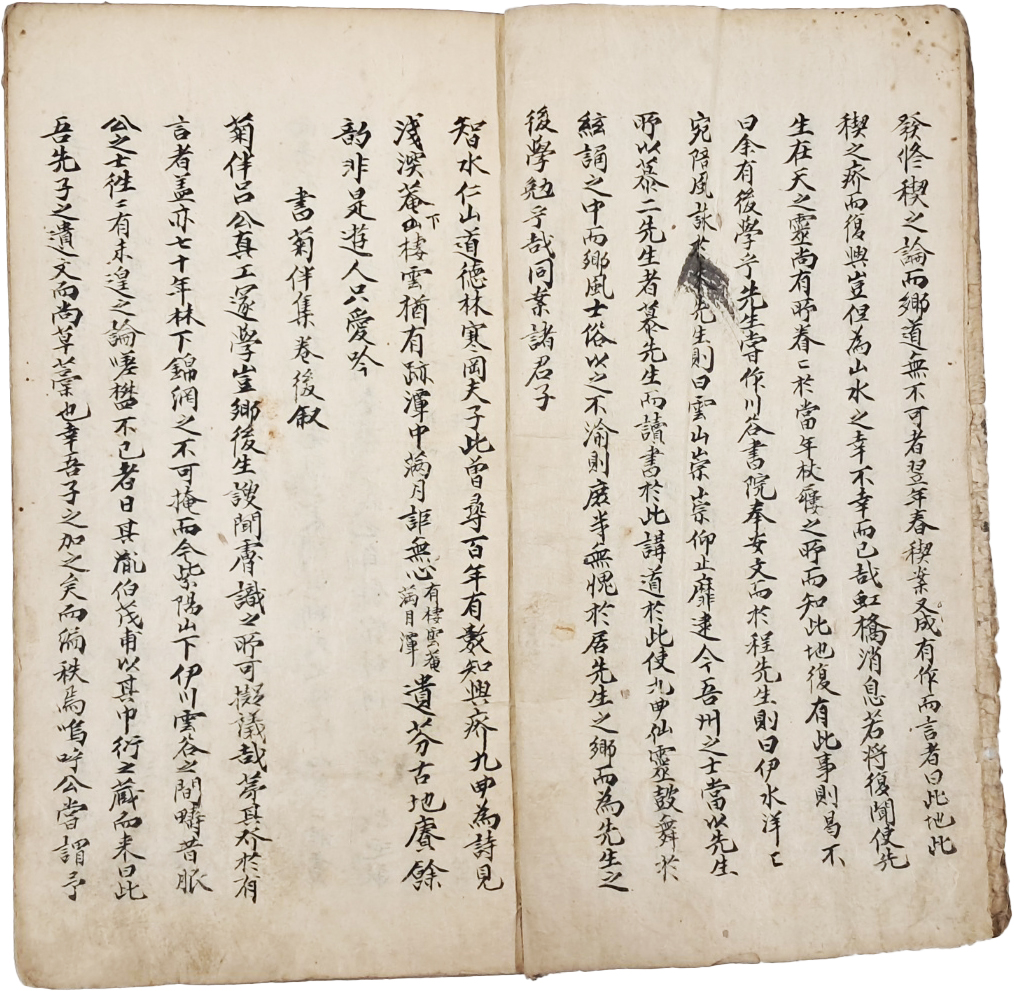 發修稧之論而鄉道無不可者翌年春稧案又成有作而言者曰此地此
稧之廢而復興豈但為山水之幸不幸而已哉虹橋消息若將復聞使先
生在天之靈尚有眄春〻於當年杖屨之所而知此地復有此事則曷不
曰余有後學乎先生嘗作川谷書院奉安文而於程先生則曰伊水洋〻
宛陪風詠於先生則曰雲山崇崇仰止靡逮今吾州之士當以先生
所以慕二先生者慕先生而讀書於此講道於此使九曲仙靈鼓舞於
絃誦之中而鄉風士俗以之不渝則庶乎無愧於居先生之鄉而為先生之
後學勉乎哉同案諸君子
智水仁山道德林寒岡夫子此曾尋百年有數知興廢九曲為詩見
淺深菴下山棲雲猶有跡潭中滿月詎無心有棲雲菴滿月潭遺芬古地賡餘
韵非是遊人只愛吟
書菊伴集卷後敘
菊伴呂公真工邃學豈鄉後生謏聞膚識之所可擬議哉第其不於有
言者盖亦七十年林下錦絅之不可掩而今紫陽山下伊川雲谷之間疇昔服
公之士徃〻有未遑之論嗟不已者日其胤伯茂甫以其巾衍之藏而来曰此
吾先子之遺文而尚草藁也幸吾子之加之矣而編秩焉嗚呼公嘗謂予